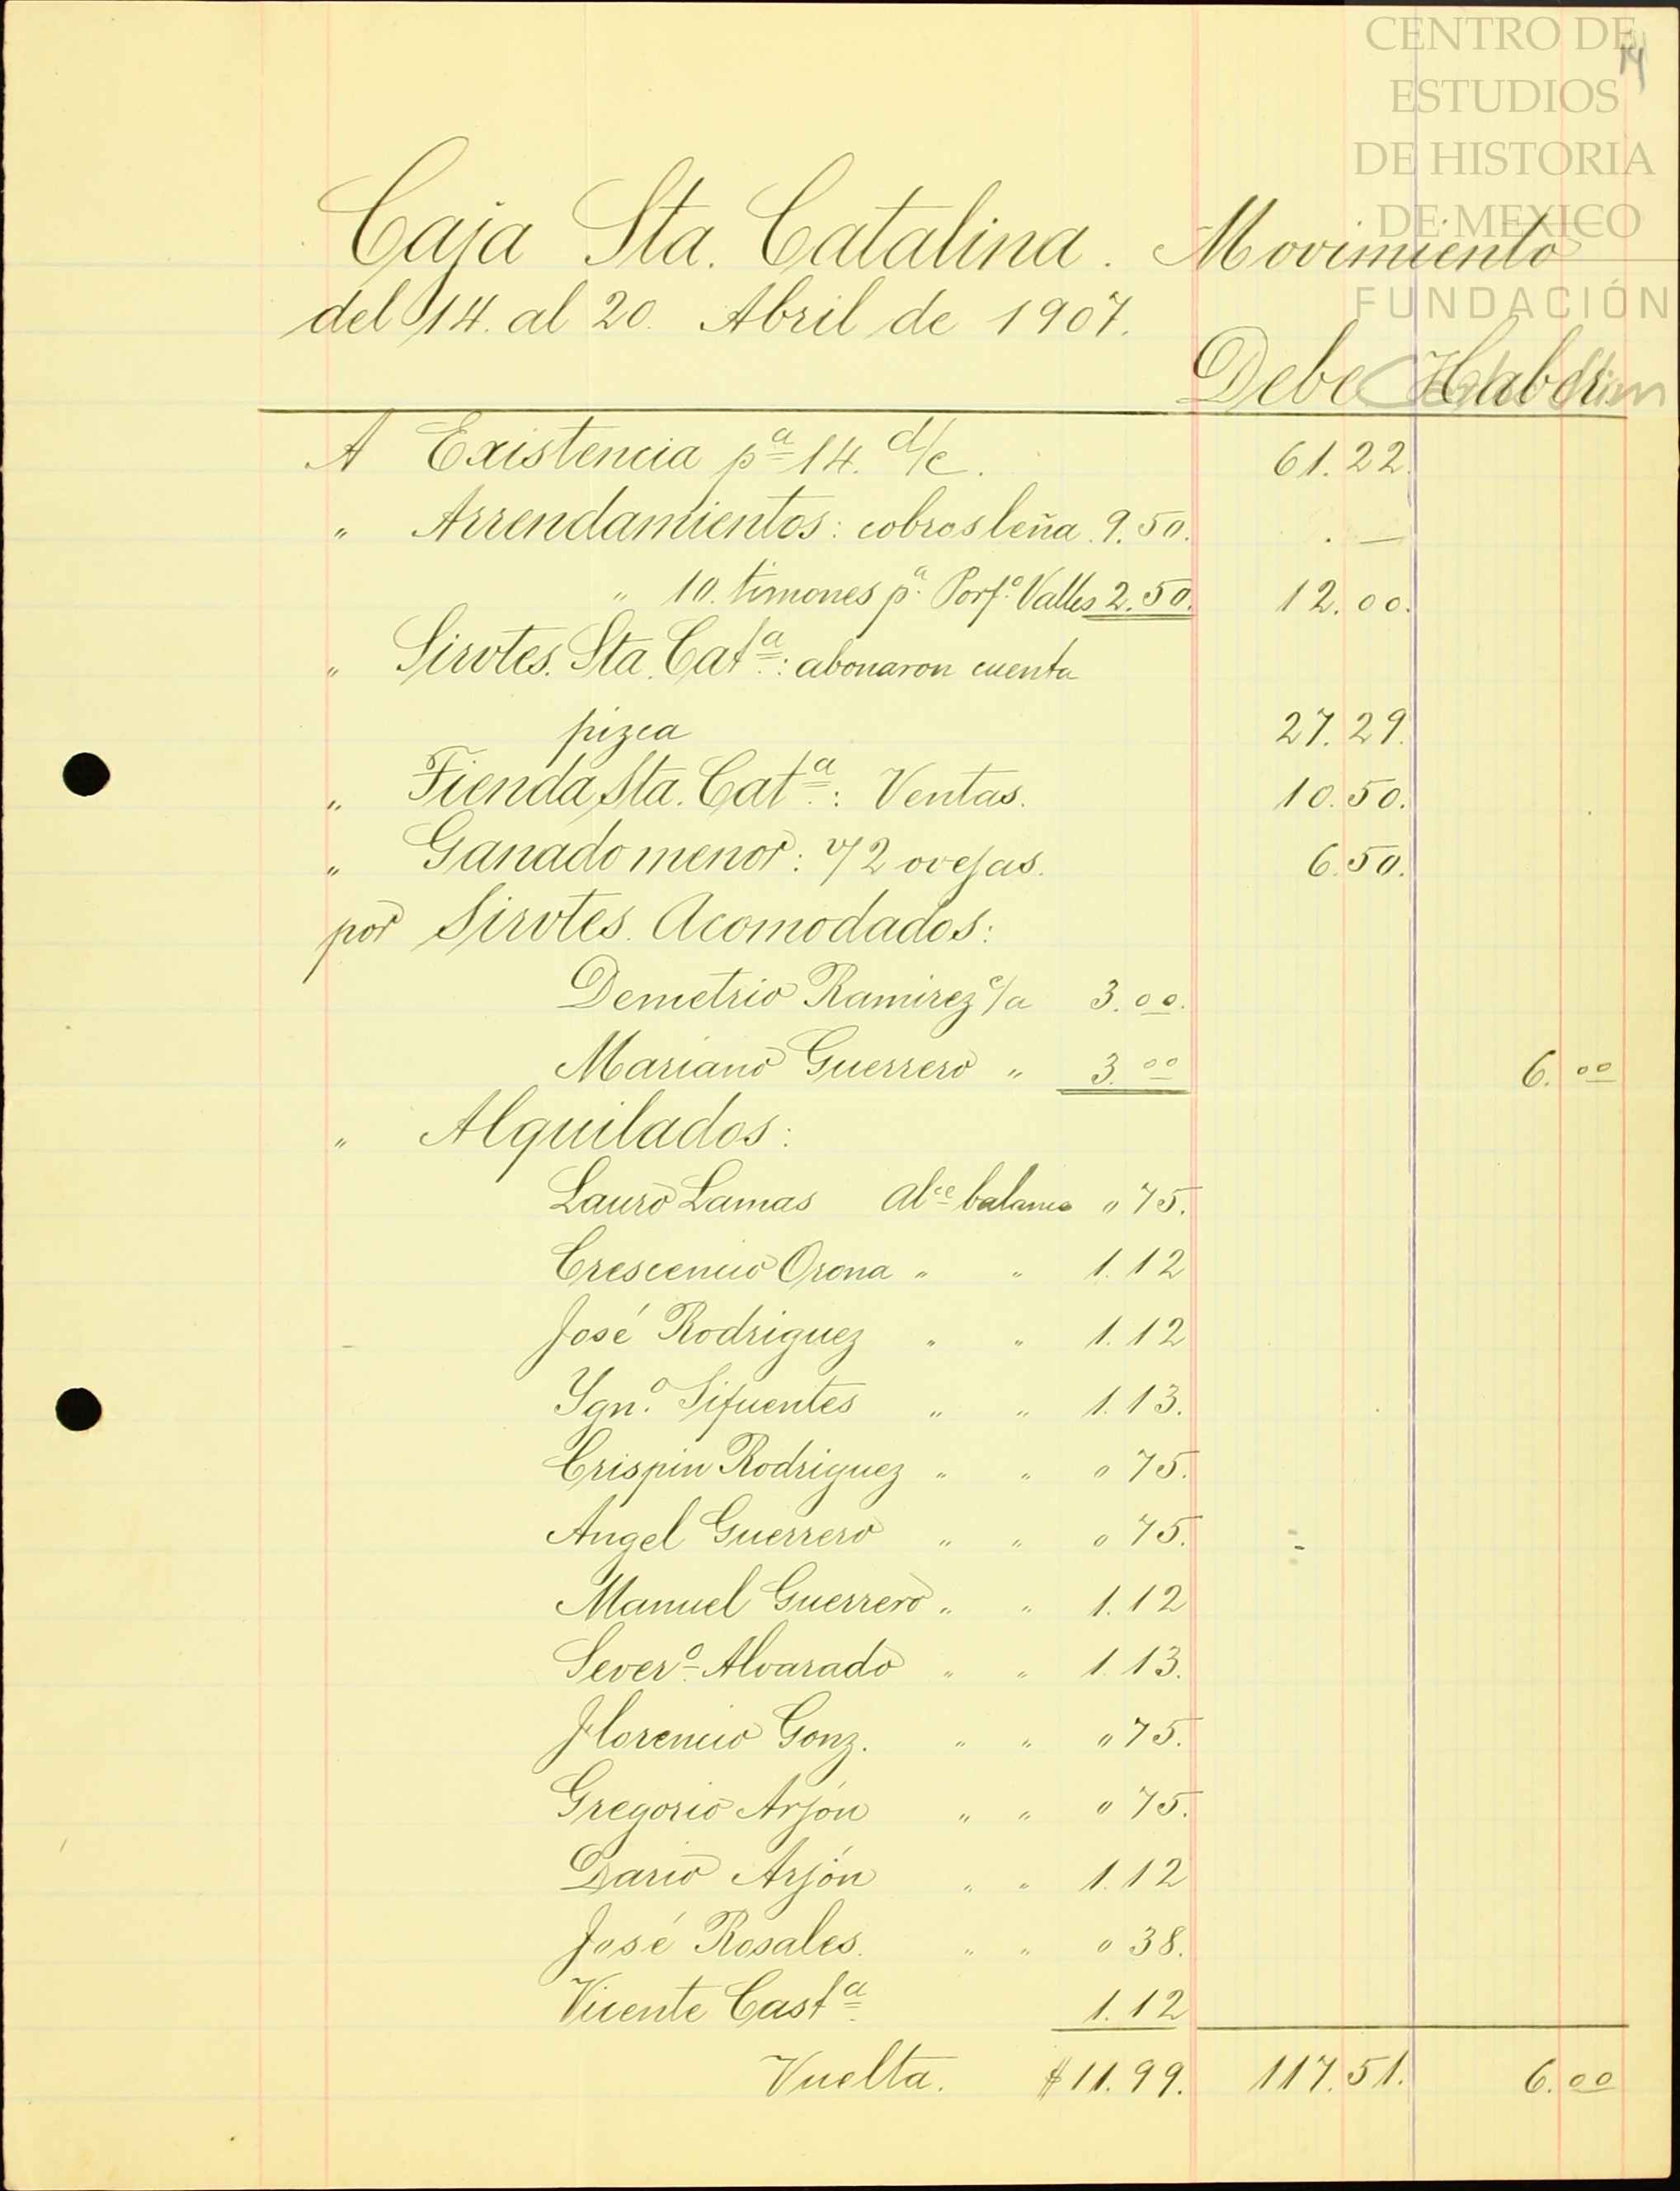 CENTRO DE
ESTUDIOS
DE HISTORIA
DE MEXICO
FUNDACIÓN
Carlos Slim
14
Caja Sta. Catalina. Movimiento
del 14. al 20. Abril de 1907.
Debe Haber
A Existencia pª 14. d/c. 61.22.
" Arrendamientos: cobros leña. 9.50.
" 10. timones pª Porfº Valles 2.50. 12.00.
" Sirvtes. Sta. Catª: abonaron cuenta
pizca 27.29.
" Tienda Sta. Catª: Ventas. 10.50.
" Ganado menor: v/2 ovejas. 6.50.
por Sirvtes. Acomodados:
Demetrio Ramirez c/a 3.00.
Mariano Guerrero " 3.00 6.00
" Alquilados:
Lauro Lamas Alce balance " 75.
Crescencio Orona " " 1.12
José Rodriguez " " 1.12
Ygn.º Sifuentes " " 1.13.
Crispin Rodriguez " " " 75.
Angel Guerrero " " " 75.
Manuel Guerrero " " 1.12
Severº Alvarado " " 1.13.
Florencio Gonz. " " " 75.
Gregorio Arjón " " " 75.
Dario Arjón " " 1.12
José Rosales. " " " 38.
Vicente Castª 1.12
Vuelta. $11.99. 117.51. 6.00